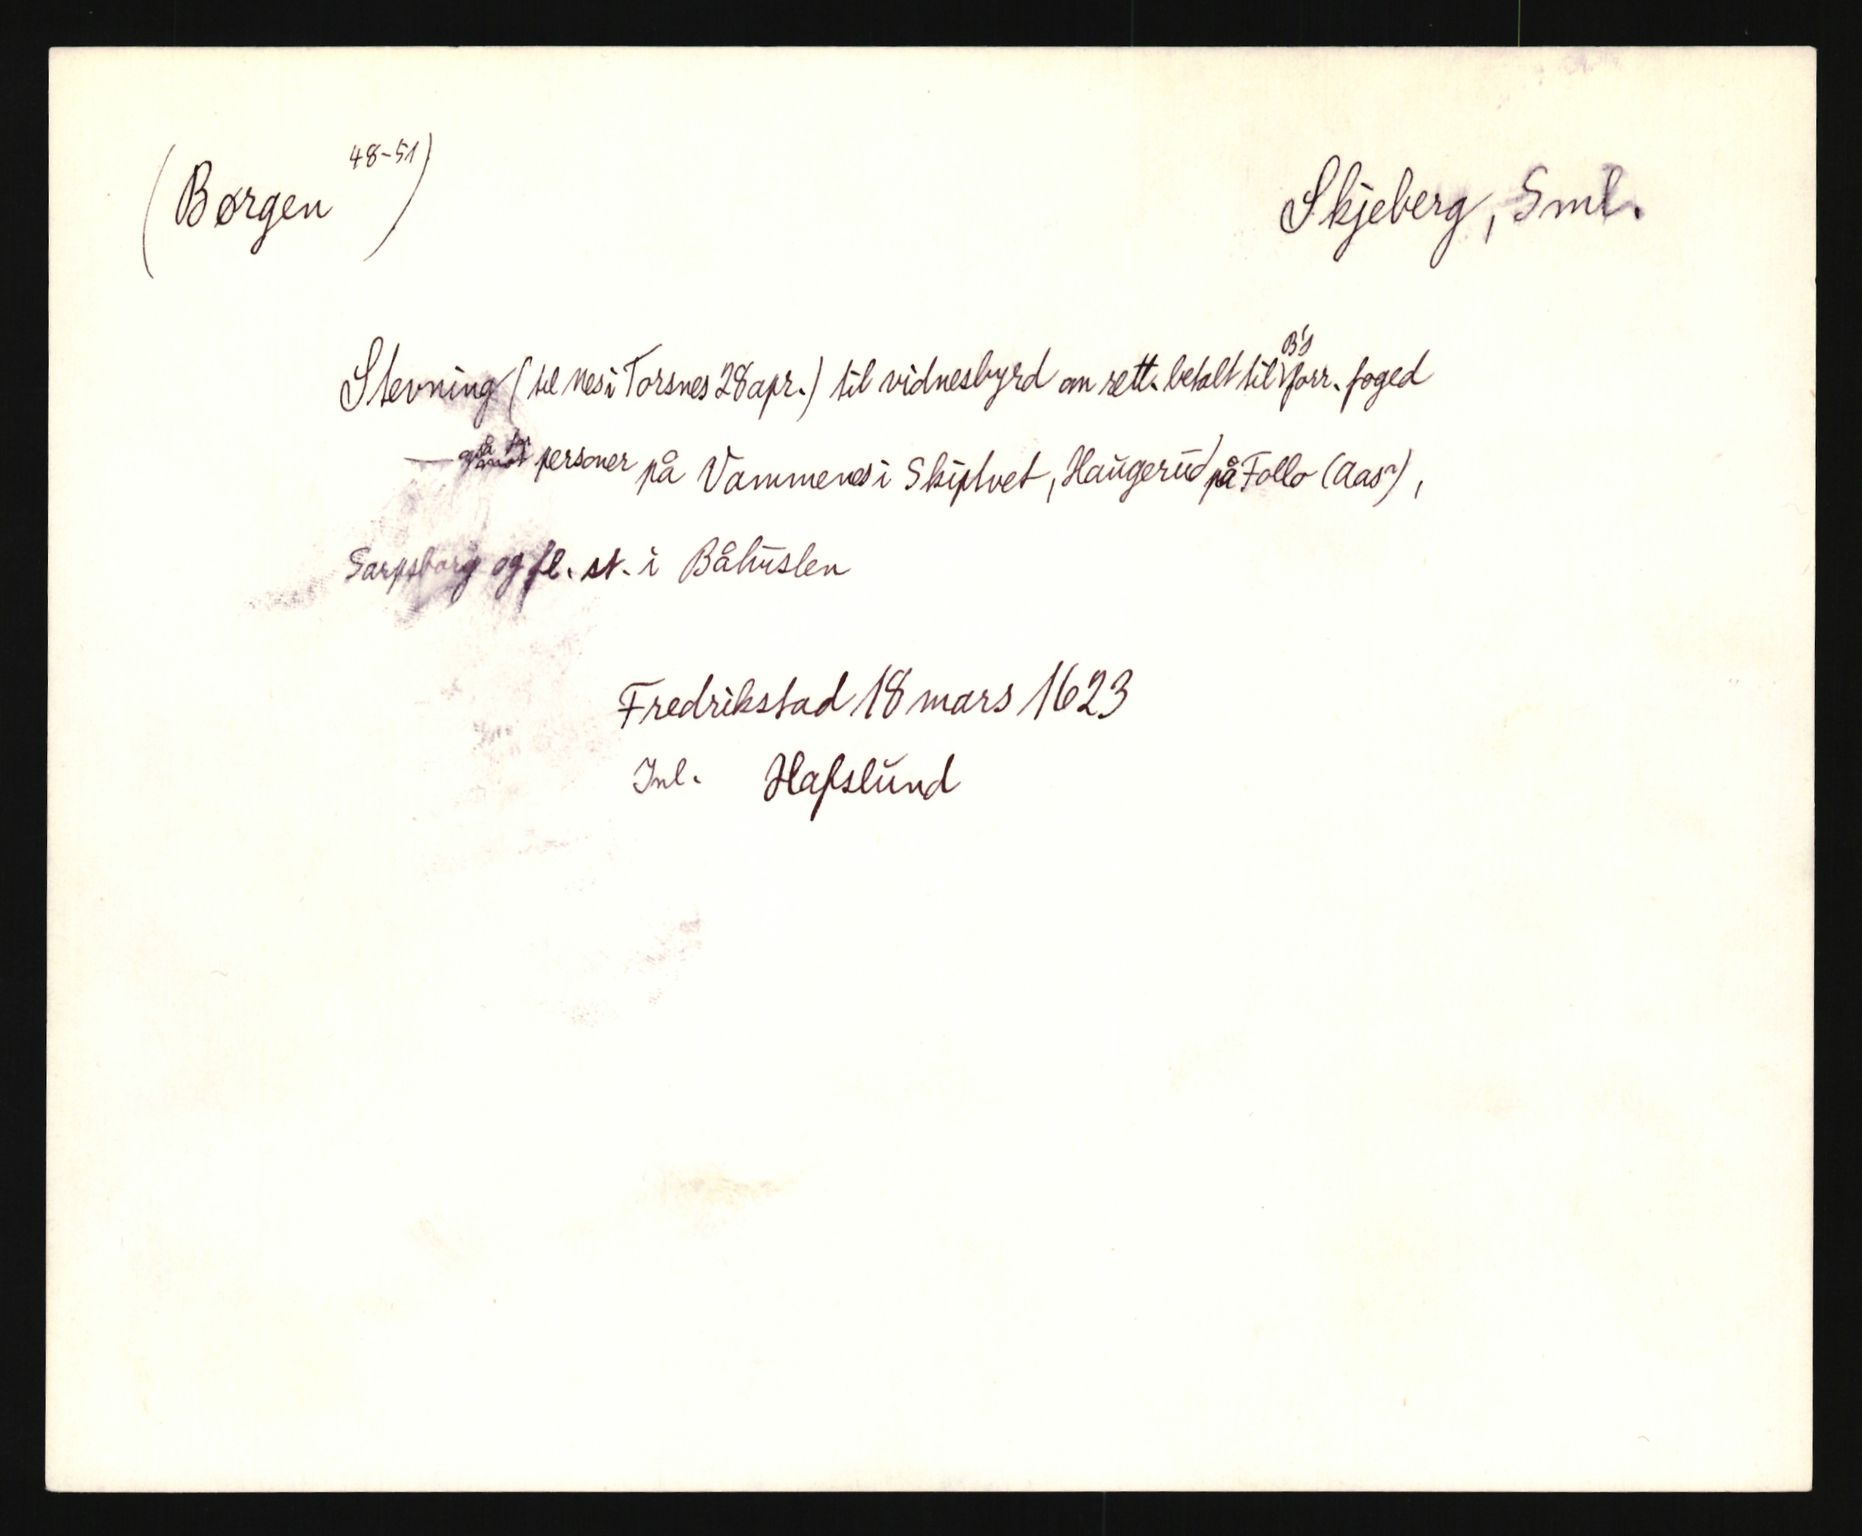 (Børgen 48-51)
Skjeberg, Sml.
Stevning (til Nes i Torsnes 28 apr.) til vidnesbyrd om rett. betalt til B's forr. foged
— også for personer på Vammenes i Skiptvet, Haugerud på Follo (Aas?),
Sarpsborg og fl. st. i Båhuslen
Fredrikstad 18 mars 1623
Inl. Hafslund